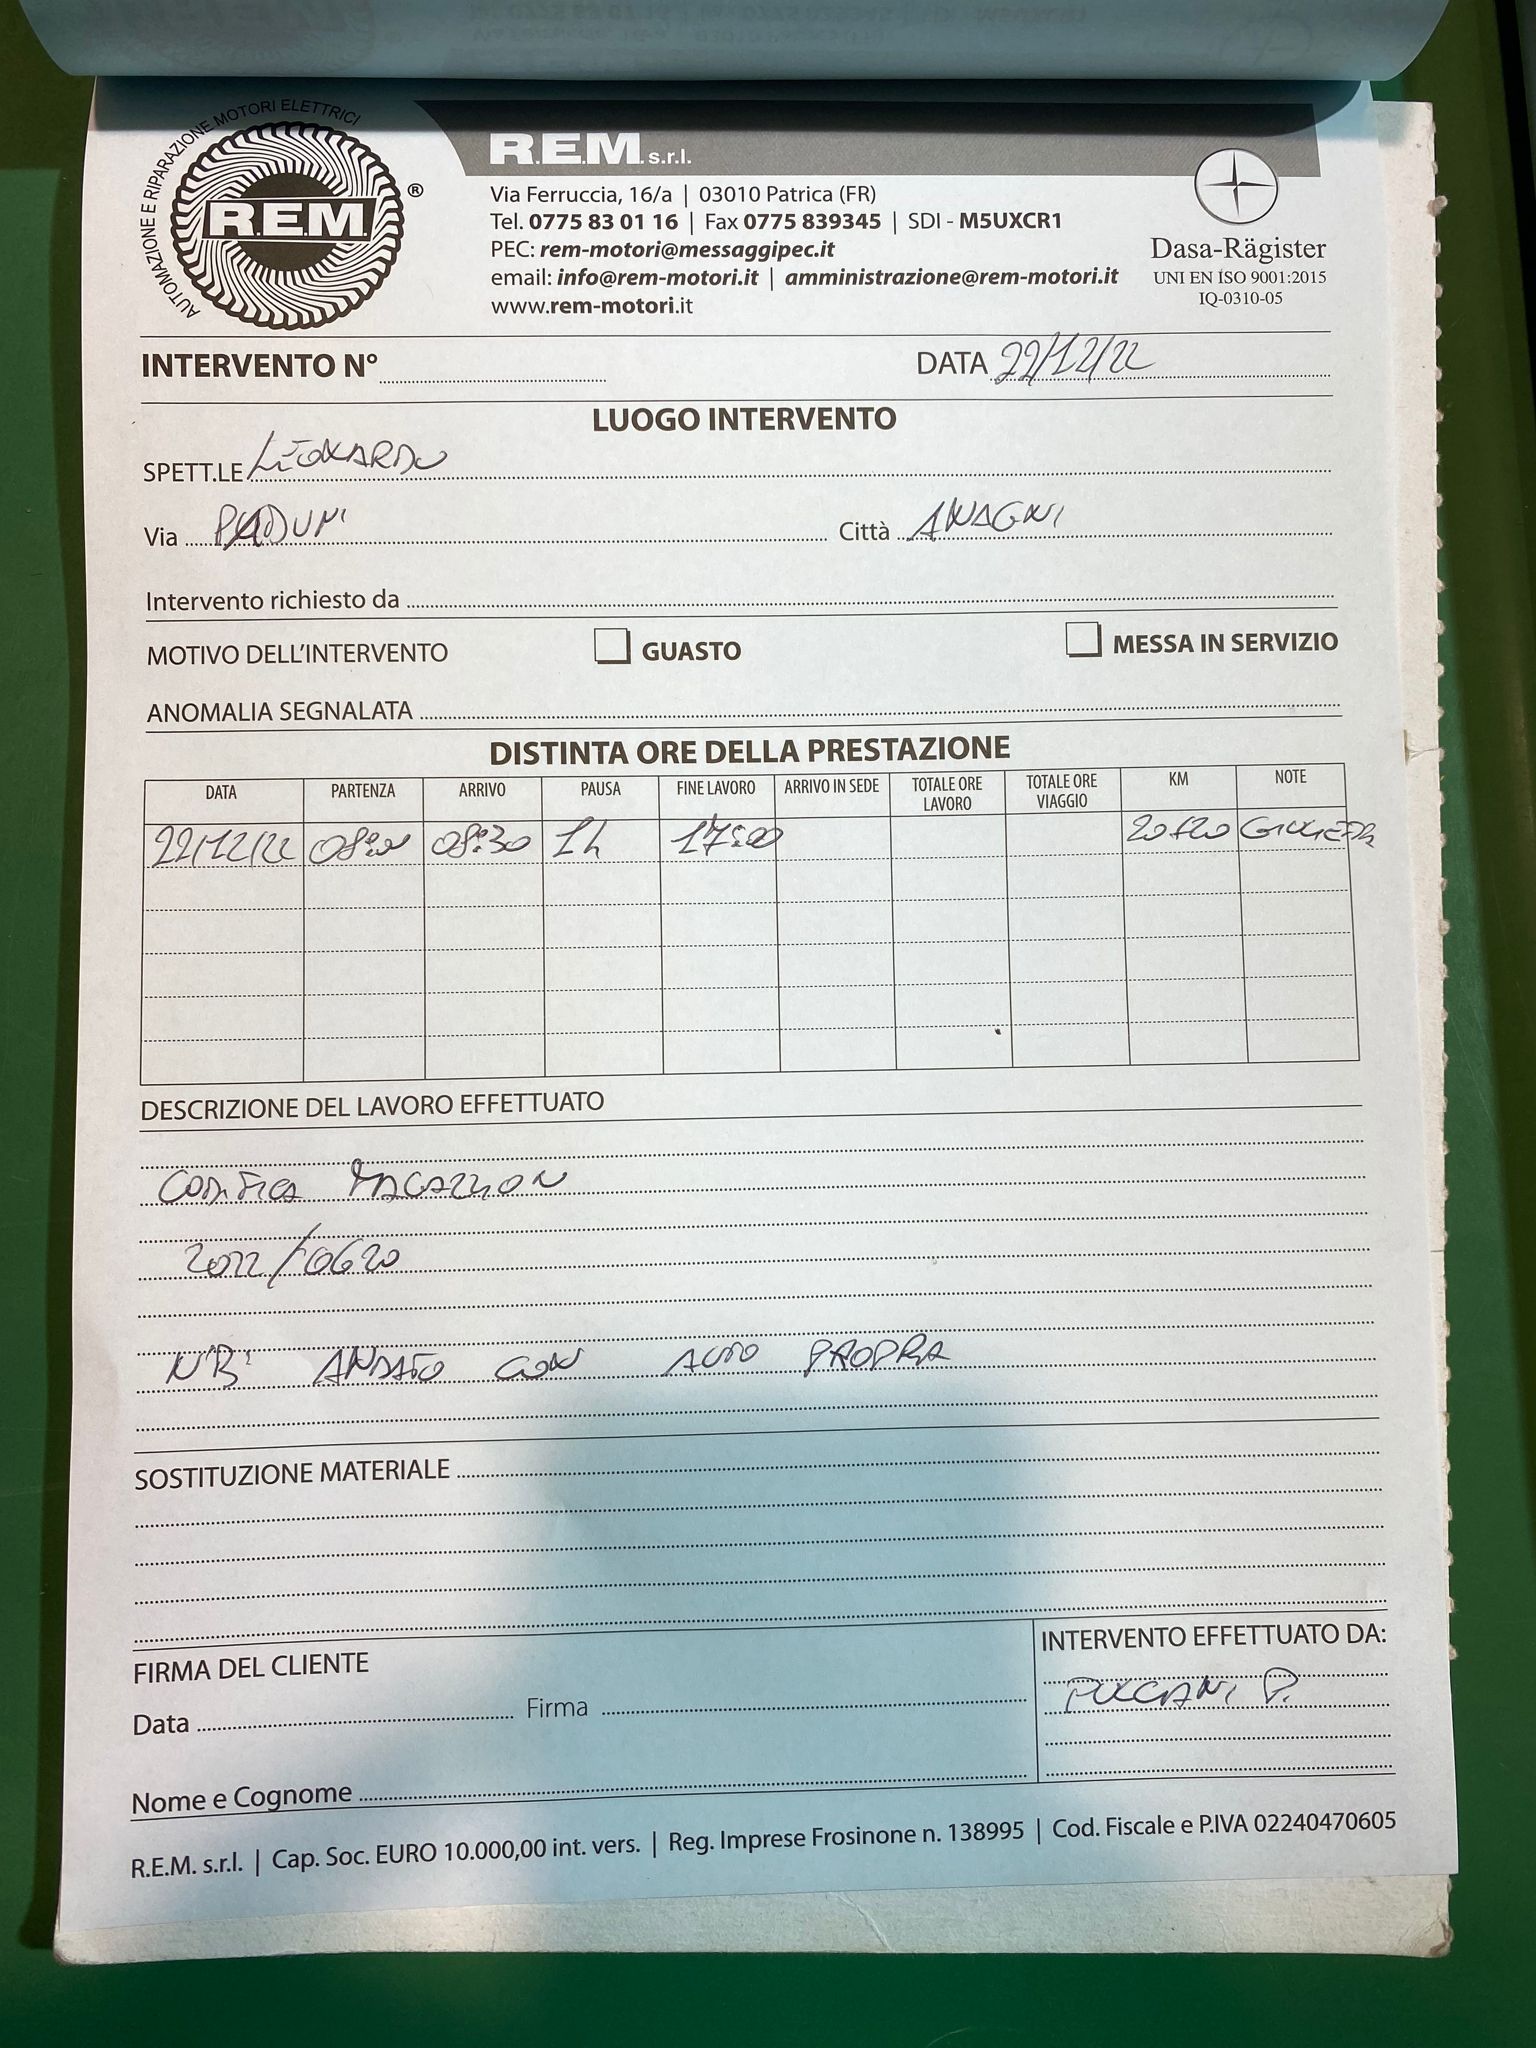 AUTOMAZIONE E RIPARAZIONE MOTORI ELETTRICI
R.E.M. ®
R.E.M. s.r.l.
Via Ferruccia, 16/a | 03010 Patrica (FR)
Tel. 0775 83 01 16 | Fax 0775 839345 | SDI - M5UXCR1
PEC: rem-motori@messaggipec.it
email: info@rem-motori.it | amministrazione@rem-motori.it
www.rem-motori.it
Dasa-Rägister
UNI EN ISO 9001:2015
IQ-0310-05
INTERVENTO N° DATA 22/12/22
LUOGO INTERVENTO
SPETT.LE LEONARDO
Via PADUNI Città ANAGNI
Intervento richiesto da
MOTIVO DELL'INTERVENTO GUASTO MESSA IN SERVIZIO
ANOMALIA SEGNALATA
DISTINTA ORE DELLA PRESTAZIONE
DATA PARTENZA ARRIVO PAUSA FINE LAVORO ARRIVO IN SEDE TOTALE ORE LAVORO TOTALE ORE VIAGGIO KM NOTE
22/12/22 08:00 08:30 1h 17:00 20+20 GIULIETTA
DESCRIZIONE DEL LAVORO EFFETTUATO
CODIFICA
2022/10620
NB: ANDATO CON AUTO PROPRIA
SOSTITUZIONE MATERIALE
FIRMA DEL CLIENTE
Data Firma
Nome e Cognome
INTERVENTO EFFETTUATO DA:
P.
R.E.M. s.r.l. | Cap. Soc. EURO 10.000,00 int. vers. | Reg. Imprese Frosinone n. 138995 | Cod. Fiscale e P.IVA 02240470605